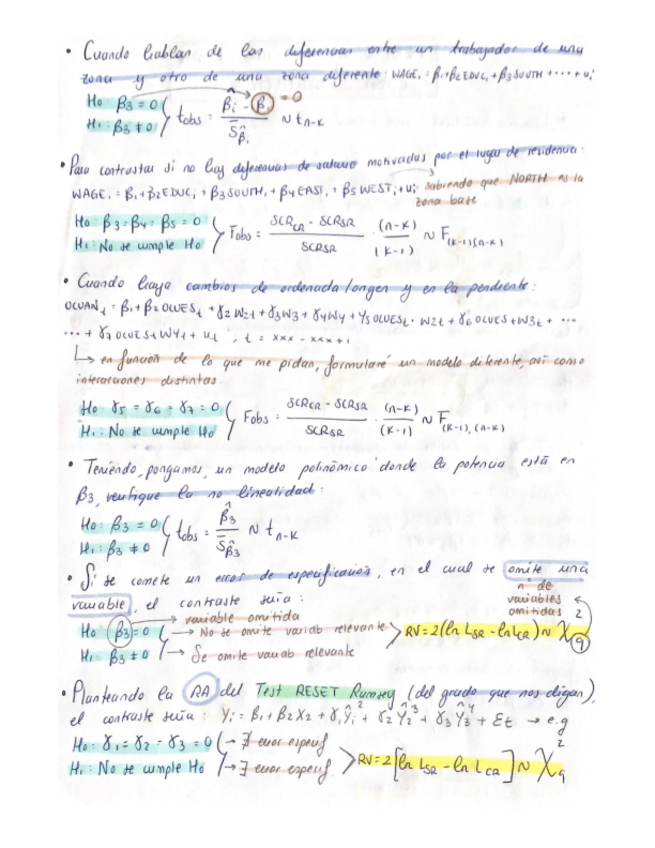 • Cuando hablan de las diferencias entre un trabajador de una
zona y otro de una zona diferente: WAGEᵢ = β₁+β₂EDUCᵢ+β₃SOUTH+····+uᵢ
H₀: β₃ = 0
H₁: β₃ ≠ 0
tobs = (β̂ᵢ - βᵢ) / Ŝβ̂ᵢ ~ t n-k
→ 0
• Para contrastar si no hay diferencias de salario motivadas por el lugar de residencia:
WAGEᵢ = β₁+β₂EDUCᵢ+β₃SOUTHᵢ+β₄EASTᵢ+β₅WESTᵢ+uᵢ sabiendo que NORTH es la
zona base
H₀: β₃=β₄=β₅=0
H₁: No se cumple H₀
Fobs = (SCR CR - SCR SR) / SCR SR · (n-k) / (k-1) ~ F (k-1)(n-k)
• Cuando haya cambios de ordenada/origen y en la pendiente:
OCUANₜ = β₁+β₂OCUESₜ+γ₂W₂ₜ+γ₃W₃+γ₄W₄+γ₅OCUESₜ·W₂ₜ+γ₆OCUESₜW₃ₜ+···
···+γ₇OCUESₜW₄ₜ+uₜ ; t = xxx - xxx+1
↳ en función de lo que me pidan, formularé un modelo diferente, así como
interacciones distintas.
H₀: γ₅ = γ₆ = γ₇ = 0
H₁: No se cumple H₀
Fobs = (SCR CR - SCR SR) / SCR SR · (n-k) / (k-1) ~ F (k-1),(n-k)
• Teniendo, pongamos, un modelo polinómico donde la potencia está en
β₃, verifique la no linealidad:
H₀: β₃ = 0
H₁: β₃ ≠ 0
tobs = β̂₃ / Ŝβ̂₃ ~ t n-k
• Si se comete un error de especificación, en el cual se omite una
variable, el contraste sería:
nº de
variables
omitidas
→ variable omitida
H₀: β₃=0 → No se omite variab relevante
H₁: β₃ ≠ 0 → Se omite variab relevante
RV=2(ln L SR - ln L CR) ~ χ² q
• Planteando la RA del Test RESET Ramsey (del grado que nos digan),
el contraste sería: Yᵢ = β₁+β₂X₂+γ₁Ŷᵢ²+γ₂Ŷ₂³+γ₃Ŷ₃⁴+Ɛt → e.g
H₀: γ₁=γ₂=γ₃=0 → ∄ error especif
H₁: No se cumple H₀ → ∃ error especif.
RV=2[ln L SR - ln L CR] ~ χ² q